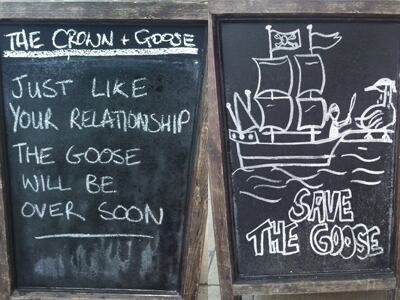 THE CROWN + GOOSE
JUST LIKE
YOUR RELATIONSHIP
THE GOOSE
WILL BE
OVER SOON
SAVE
THE GOOSE